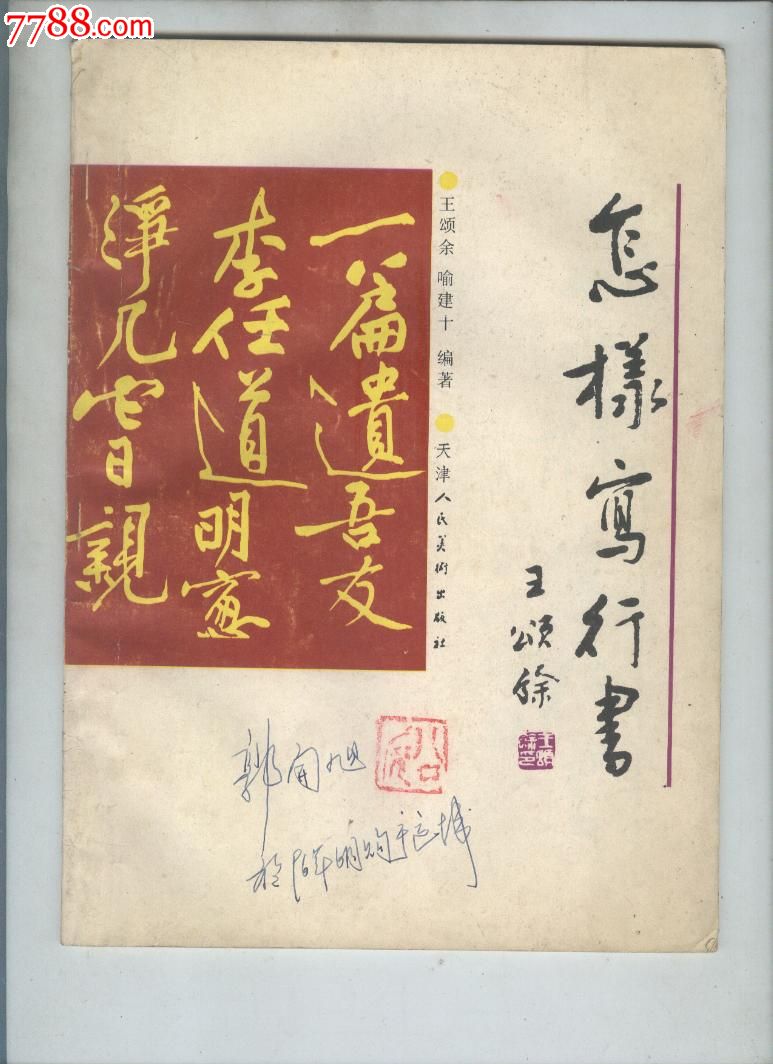 7788.com
怎樣寫行書
王頌餘
王颂余 喻建十 编著
天津人民美術出版社
一篇遺吾友
李任道明窓
淨几宜親
郭